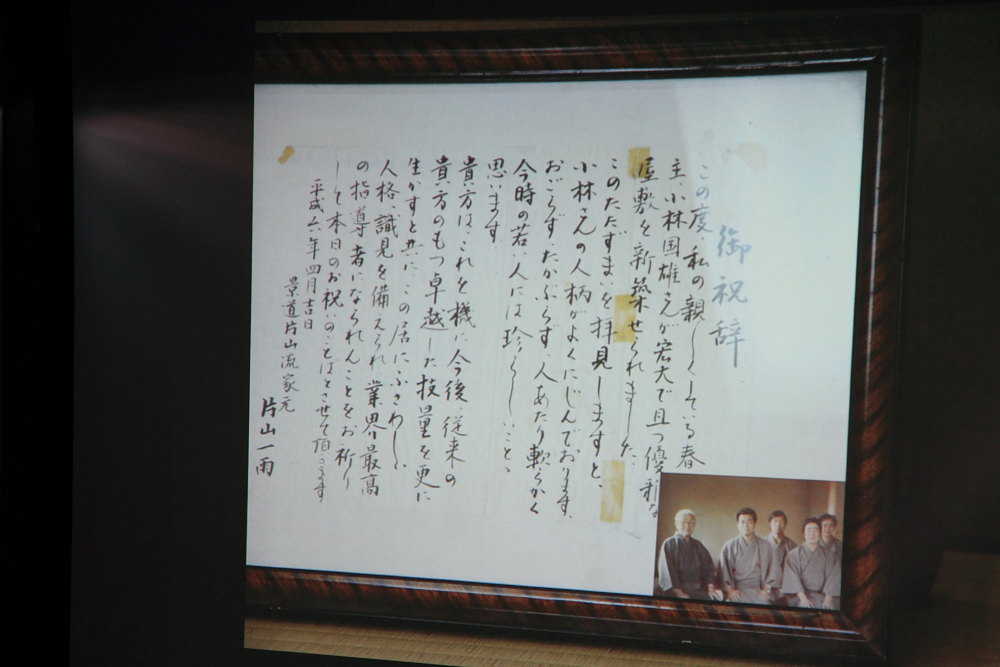 御祝辞
この度、私の親しくしている春
主、小林国雄さんが宏大で且つ優雅な
屋敷を新築せられました、
このたたずまいを拝見しますと、
小林さんの人柄がよくにじんでおります、
おごらず、たかぶらず、人あたり軟らかく
今時の若い人には珍らしいことゝ
思います、
貴方は、これを機に今後、従来の
貴方のもつ卓越した技量を更に
生かすと共に、この居にふさわしい
人格、識見を備えられ、業界最高
の指導者になられんことをお祈り
して本日のお祝いのことばとさせて頂きます
平成六年四月吉日
景道片山流家元
片山一雨